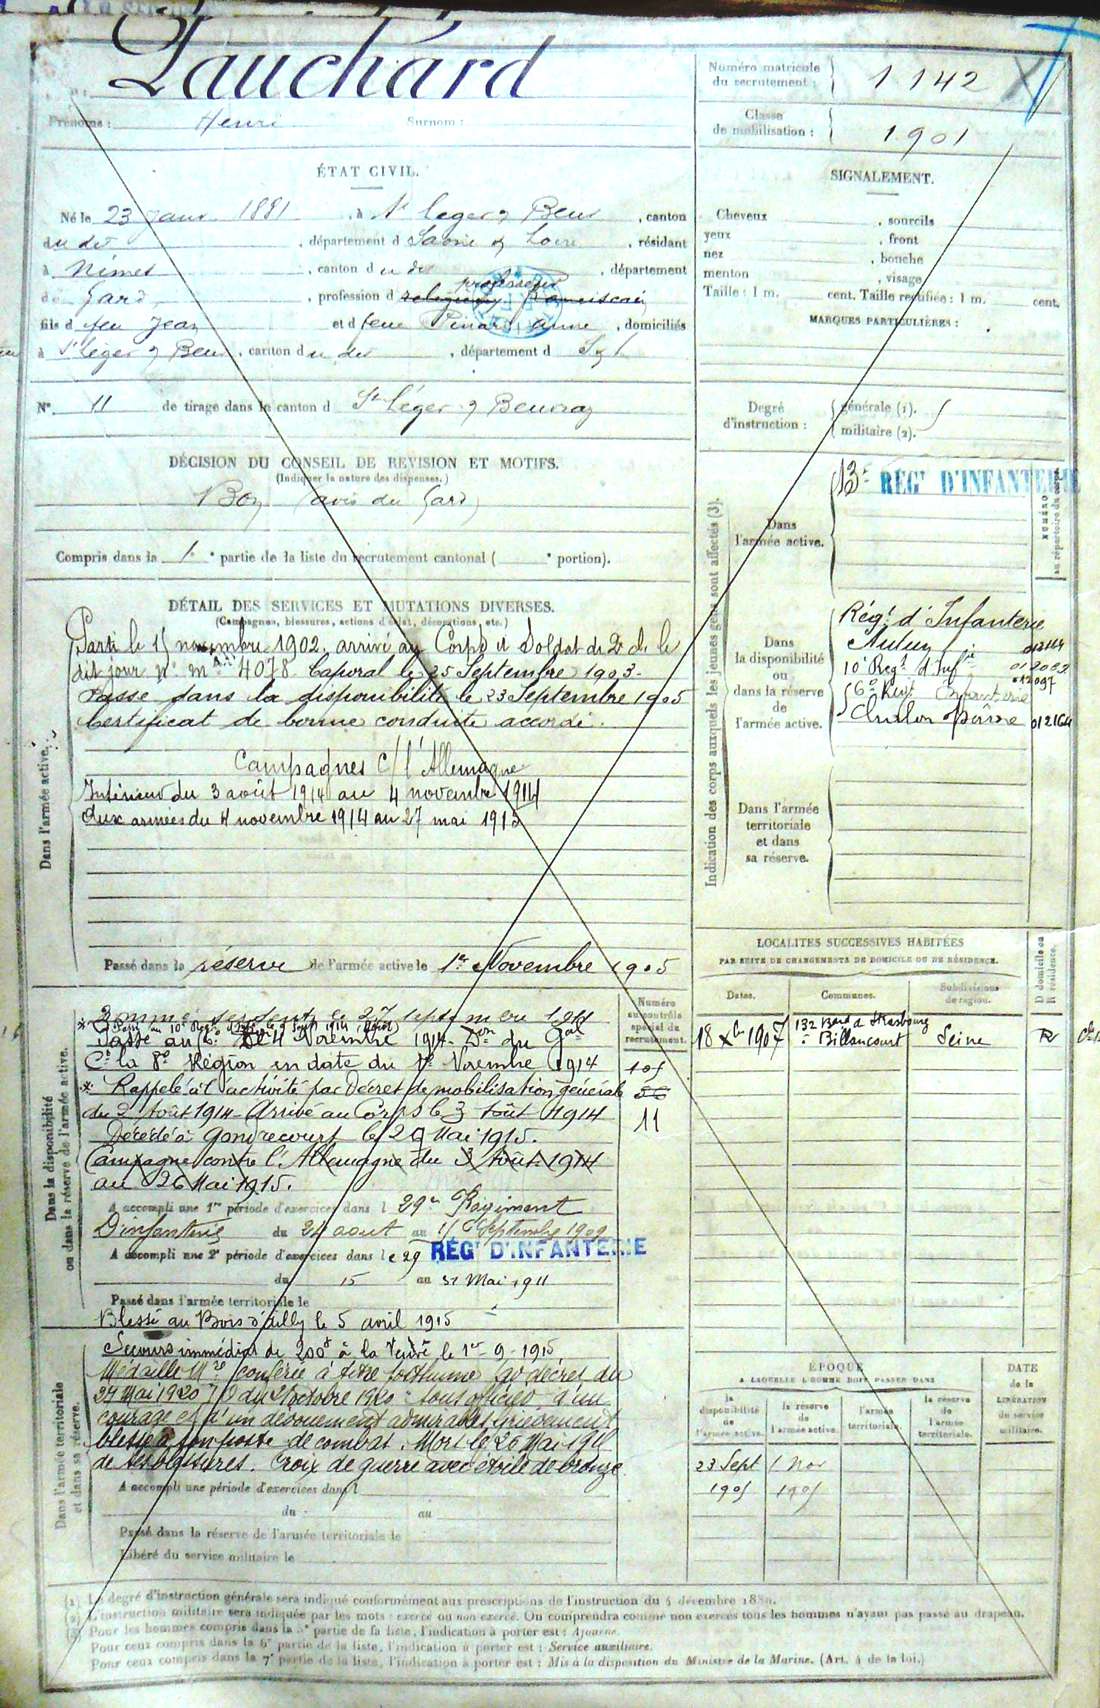 Lauchard
Prénoms : Henri Surnom :
Numéro matricule du recrutement : 1142
Classe de mobilisation : 1901
ÉTAT CIVIL.
Né le 23 janv 1881, à St Leger s Beuv, canton
du dit, département d Saône & Loire, résidant
à Nîmes, canton du dit, département
de Gard, profession d religieux Franciscain professeur
fils d feu Jean et d feue Pinard Anne, domiciliés
à St Léger s Beuv, canton du dit, département d S & L
N° 11 de tirage dans le canton d St Léger s Beuvray
DÉCISION DU CONSEIL DE REVISION ET MOTIFS.
(Indiquer la nature des dispenses.)
Bon (avis du Gard)
Compris dans la 1e partie de la liste du recrutement cantonal ( e portion).
DÉTAIL DES SERVICES ET MUTATIONS DIVERSES.
(Campagnes, blessures, actions d'éclat, décorations, etc.)
Dans l'armée active.
Parti le 15 novembre 1902, arrivé au Corps et Soldat de 2e cl. le
dit jour N° mle 4078. Caporal le 25 Septembre 1903.
Passé dans la disponibilité le 23 Septembre 1905
Certificat de bonne conduite accordé.
Campagnes c/ l'Allemagne
Intérieur du 3 août 1914 au 4 novembre 1914
Aux armées du 4 novembre 1914 au 27 mai 1915
Passé dans la réserve de l'armée active le 1er Novembre 1905
Dans la disponibilité ou dans la réserve de l'armée active.
Numéro au contrôle spécial du recrutement.
* Nommé sergent le 27 septembre 1914
Passé au 10e Reg 1914
Passé au le 4 Novembre 1914 Don du Gal
Ct la 8e Région en date du 1er Novembre 1914
105
* Rappelé à l'activité par Décret de mobilisation générale
56
du 2 Août 1914. Arrivé au Corps le 3 Août 1914
11
Décédé à Gondrecourt le 26 Mai 1915.
Campagne contre l'Allemagne du 3 Août 1914
au 26 Mai 1915.
A accompli une 1re période d'exercices dans l 29e Régiment
D'infanterie du 24 août au 15 Septembre 1909
A accompli une 2e période d'exercices dans le 29 RÉGt D'INFANTERIE
du 15 au 31 Mai 1911
Passé dans l'armée territoriale le
Blessé au Bois d'Ailly le 5 avril 1915
Dans l'armée territoriale et dans sa réserve.
Secours immédiat de 200f à la Veuve le 1er-9-1915
Médaille Mre conférée à titre posthume par décret du
27 Mai 1920 J.O. du 21 octobre 1920 : sous officier d'un
courage et d'un dévouement admirables. Grièvement
blessé à son poste de combat. Mort le 26 Mai 1915
de ses blessures. Croix de guerre avec étoile de bronze
A accompli une période d'exercices dans l
du au
Passé dans la réserve de l'armée territoriale le
Libéré du service militaire le
SIGNALEMENT.
Cheveux , sourcils
yeux , front
nez , bouche
menton , visage
Taille : 1 m. cent. Taille rectifiée : 1 m. cent.
MARQUES PARTICULIÈRES :
Degré d'instruction : générale (1). 5
militaire (2).
Indication des corps auxquels les jeunes gens sont affectés (3).
NUMÉRO au répertoire du corps
Dans l'armée active.
13e RÉGt D'INFANTERIE
Dans la disponibilité ou dans la réserve de l'armée active.
Régt d'Infanterie
Autun 012164
10e Régt d'Infie 012083
6e Regt 012097
Chalon s/ Saône 012164
Dans l'armée territoriale et dans sa réserve.
LOCALITES SUCCESSIVES HABITÉES
PAR SUITE DE CHANGEMENTS DE DOMICILE OU DE RÉSIDENCE.
Dates. Communes. Subdivisions de région. D domicile ou R résidence.
18 Xbre 1907 132 Bard de Strasbourg Billancourt Seine R
ÉPOQUE
A LAQUELLE L'HOMME DOIT PASSER DANS
DATE de la LIBÉRATION du service militaire.
la disponibilité de l'armée active. la réserve de l'armée active. l'armée territoriale. la réserve de l'armée territoriale.
23 Sept 1905 1 Nov 1905
(1) Le degré d'instruction générale sera indiqué conformément aux prescriptions de l'instruction du 4 décembre 1889.
(2) L'instruction militaire sera indiquée par les mots : exercé ou non exercé. On comprendra comme non exercés tous les hommes n'ayant pas passé au drapeau.
(3) Pour les hommes compris dans la 5e partie de la liste, l'indication à porter est : Ajourné.
Pour ceux compris dans la 6e partie de la liste, l'indication à porter est : Service auxiliaire.
Pour ceux compris dans la 7e partie de la liste, l'indication à porter est : Mis à la disposition du Ministre de la Marine. (Art. 4 de la loi.)